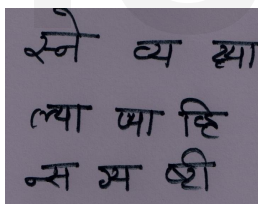 स्ने व्य ध्या
ल्या प्या व्हि
न्स ग्म ष्टी